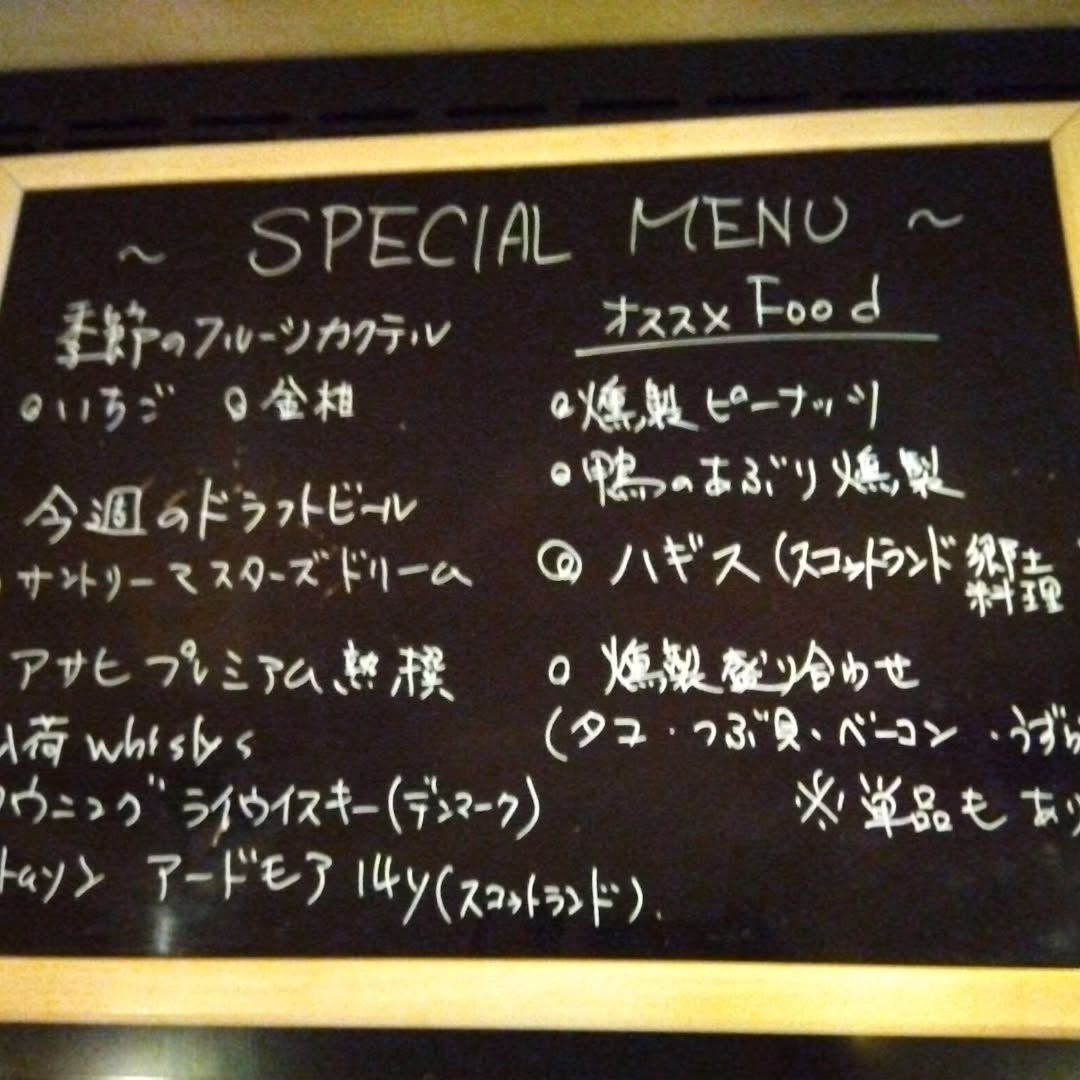 ~ SPECIAL MENU ~
季節のフルーツカクテル
いちご 金柑
今週のドラフトビール
サントリーマスターズドリーム
アサヒプレミアム熟撰
荷 whisky s
ウニング ライウイスキー(デンマーク)
アードモア 14y(スコットランド)
オススメ Food
燻製ピーナッツ
鴨のあぶり燻製
◎ ハギス(スコットランド郷土
料理
燻製盛り合わせ
(タコ・つぶ貝、ベーコン・うずら
※単品もあり